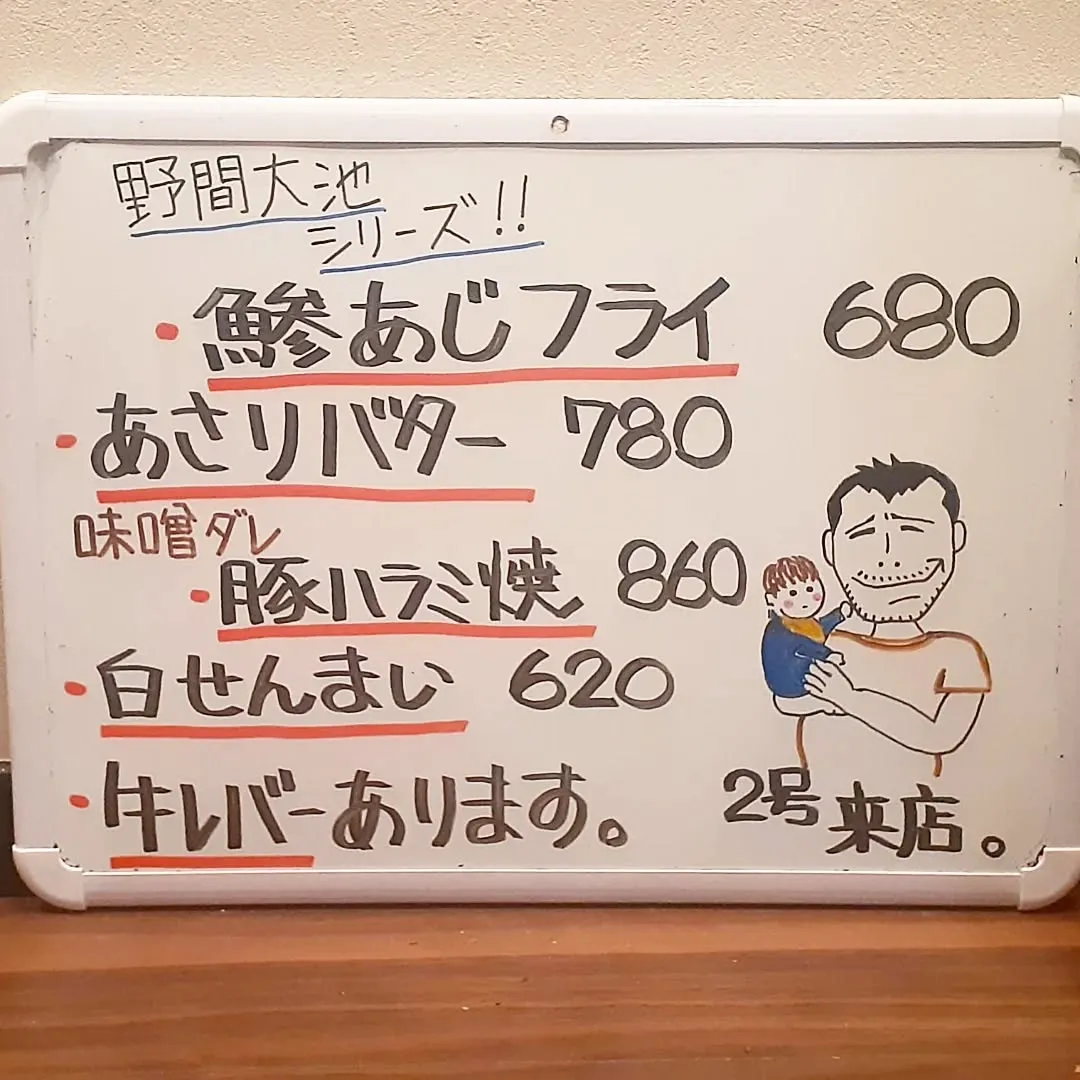 野間大池
シリーズ!!
・鯵あじフライ 680
・あさりバター 780
味噌ダレ
・豚ハラミ焼 860
・白せんまい 620
・牛レバーあります。
2号来店。